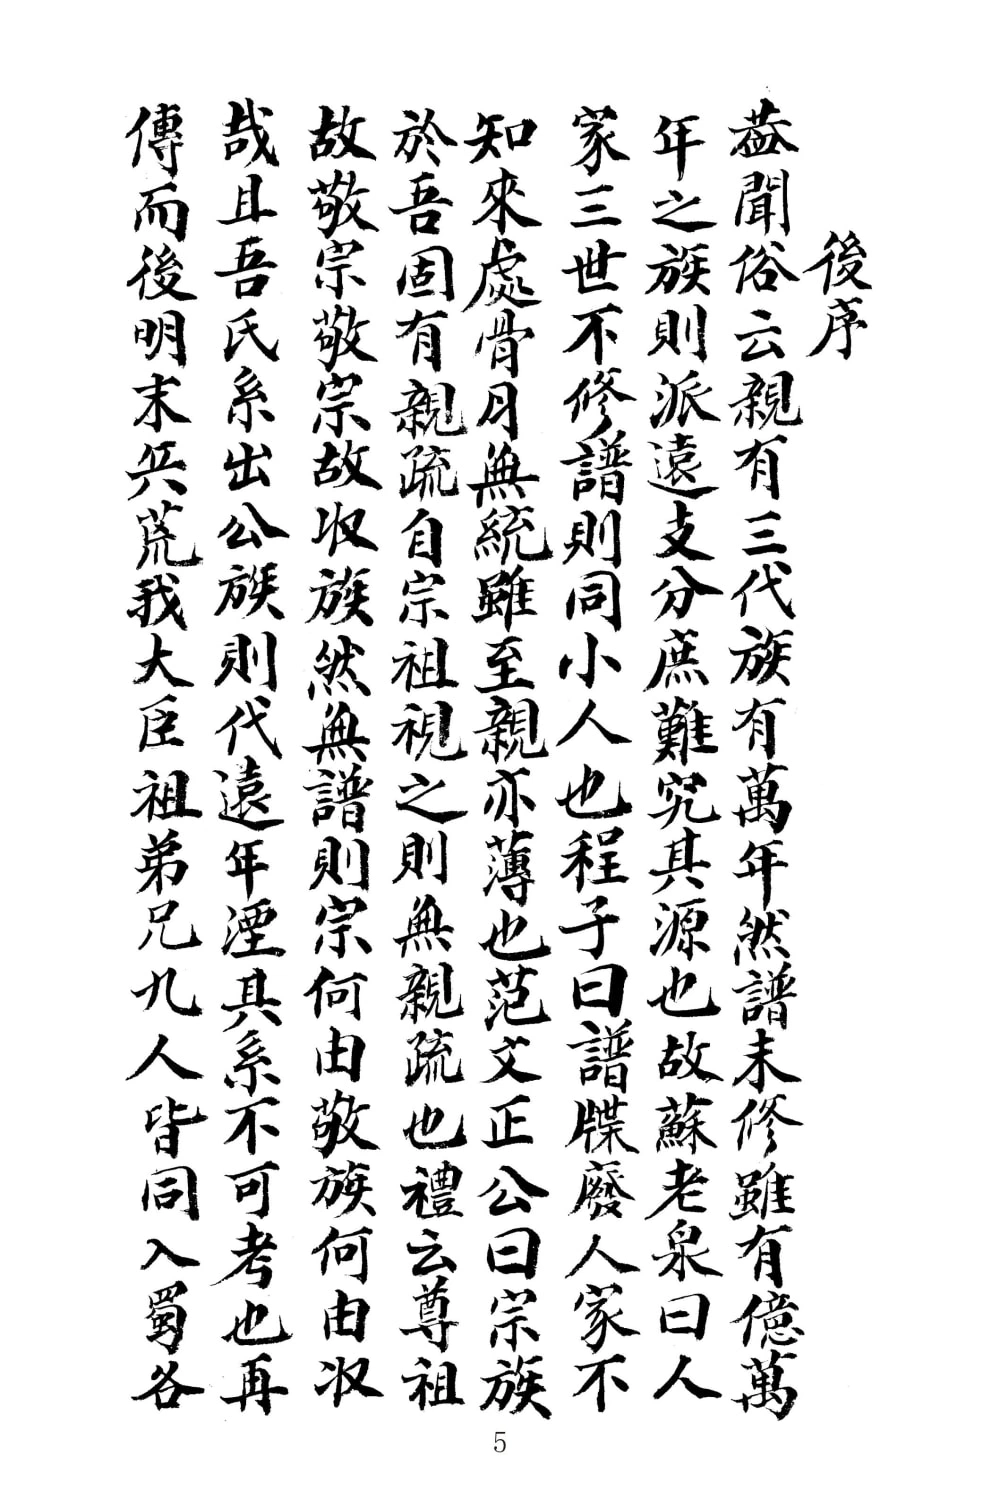 後序
葢聞俗云親有三代族有萬年然譜未修雖有億萬
年之族則派遠支分庶難究其源也故蘇老泉曰人
家三世不修譜則同小人也程子曰譜牒廢人家不
知來處骨月無統雖至親亦薄也范文正公曰宗族
於吾固有親疏自宗祖視之則無親疏也禮云尊祖
故敬宗敬宗故収族然無譜則宗何由敬族何由収
哉且吾氏系出公族則代遠年湮其系不可考也再
傳而後明末兵荒我大臣祖弟兄九人皆同入蜀各
5